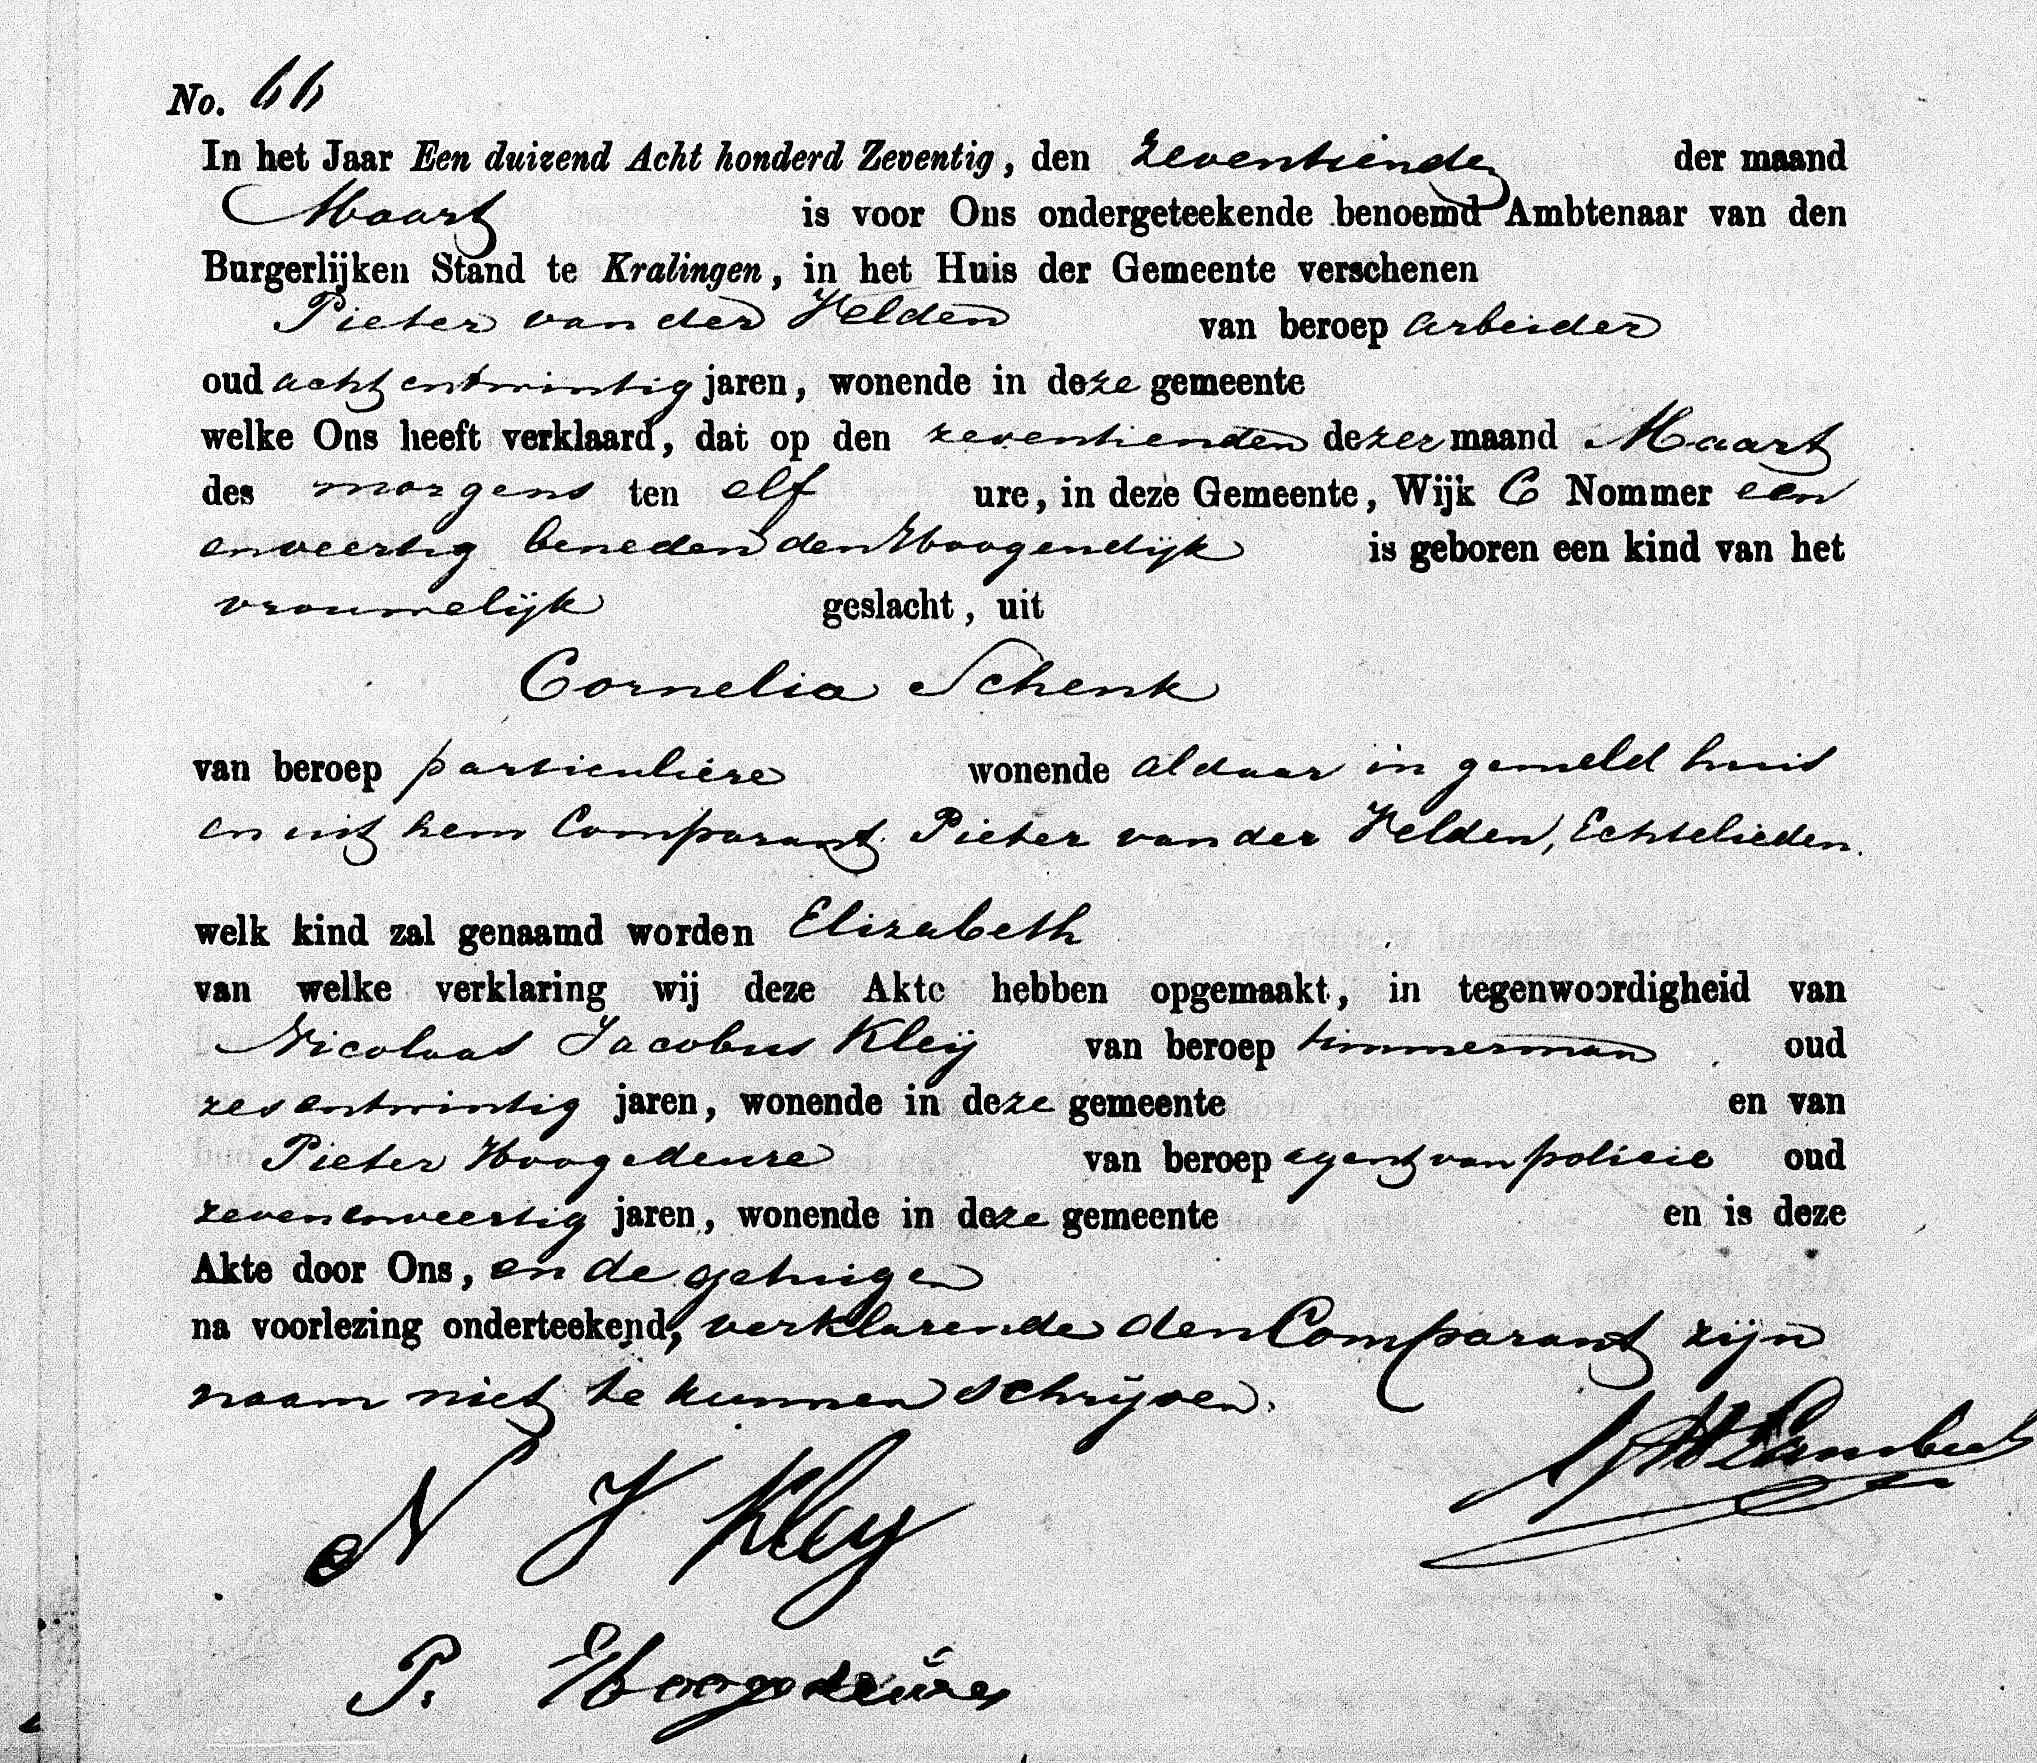 No. 66
In het Jaar Een duizend Acht honderd Zeventig, den zeventiende der maand
Maart is voor Ons ondergeteekende benoemd Ambtenaar van den
Burgerlijken Stand te Kralingen, in het Huis der Gemeente verschenen
Pieter van der Velden van beroep arbeider
oud acht en twintig jaren, wonende in deze gemeente
welke Ons heeft verklaard, dat op den zeventienden dezer maand Maart
des morgens ten elf ure, in deze Gemeente, Wijk C Nommer een
en veertig beneden den Hoogendijk is geboren een kind van het
vrouwelijk geslacht, uit
Cornelia Schenk
van beroep particuliere wonende aldaar in gemeld huis
en uit hem Comparant Pieter van der Velden, Echtelieden.
welk kind zal genaamd worden Elizabeth
van welke verklaring wij deze Akte hebben opgemaakt, in tegenwoordigheid van
Nicolaas Jacobus Kleij van beroep timmerman oud
zes en twintig jaren, wonende in deze gemeente en van
Pieter Hoogedeure van beroep agent van policie oud
zeven en veertig jaren, wonende in deze gemeente en is deze
Akte door Ons, en de getuigen
na voorlezing onderteekend, verklarende den Comparant zijn
naam niet te kunnen schrijven.
N J Kleij
P. Hoogedeure